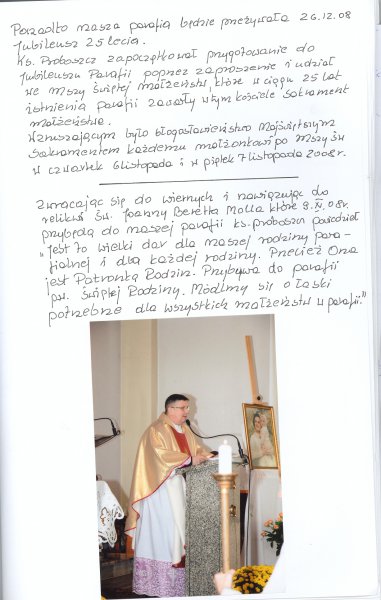 Ponadto nasza parafia będzie przeżywała 26.12.08
Jubileusz 25 lecia.
Ks. Proboszcz zapoczątkował przygotowanie do
Jubileuszu Parafii poprzez zaproszenie i udział
we Mszy Świętej małżeństw które w ciągu 25 lat
istnienia parafii zawarły w tym kościele Sakrament
małżeństwa.
Wzruszającym było błogosławieństwo Najświętszym
Sakramentem każdemu małżonkowi po Mszy Św
w czwartek 6 listopada i w piątek 7 listopada 2008r.
Zwracając się do wiernych i nawiązując do
relikwii Św. Joanny Beretta Molla które 9.XI.08r.
przybędą do naszej parafii ks. proboszcz powiedział
„Jest to wielki dar dla naszej rodziny para-
fialnej i dla każdej rodziny. Przecież Ona
jest Patronką Rodzin. Przybywa do parafii
pw. Świętej Rodziny. Módlmy się o łaski
potrzebne dla wszystkich małżeństw w parafii."